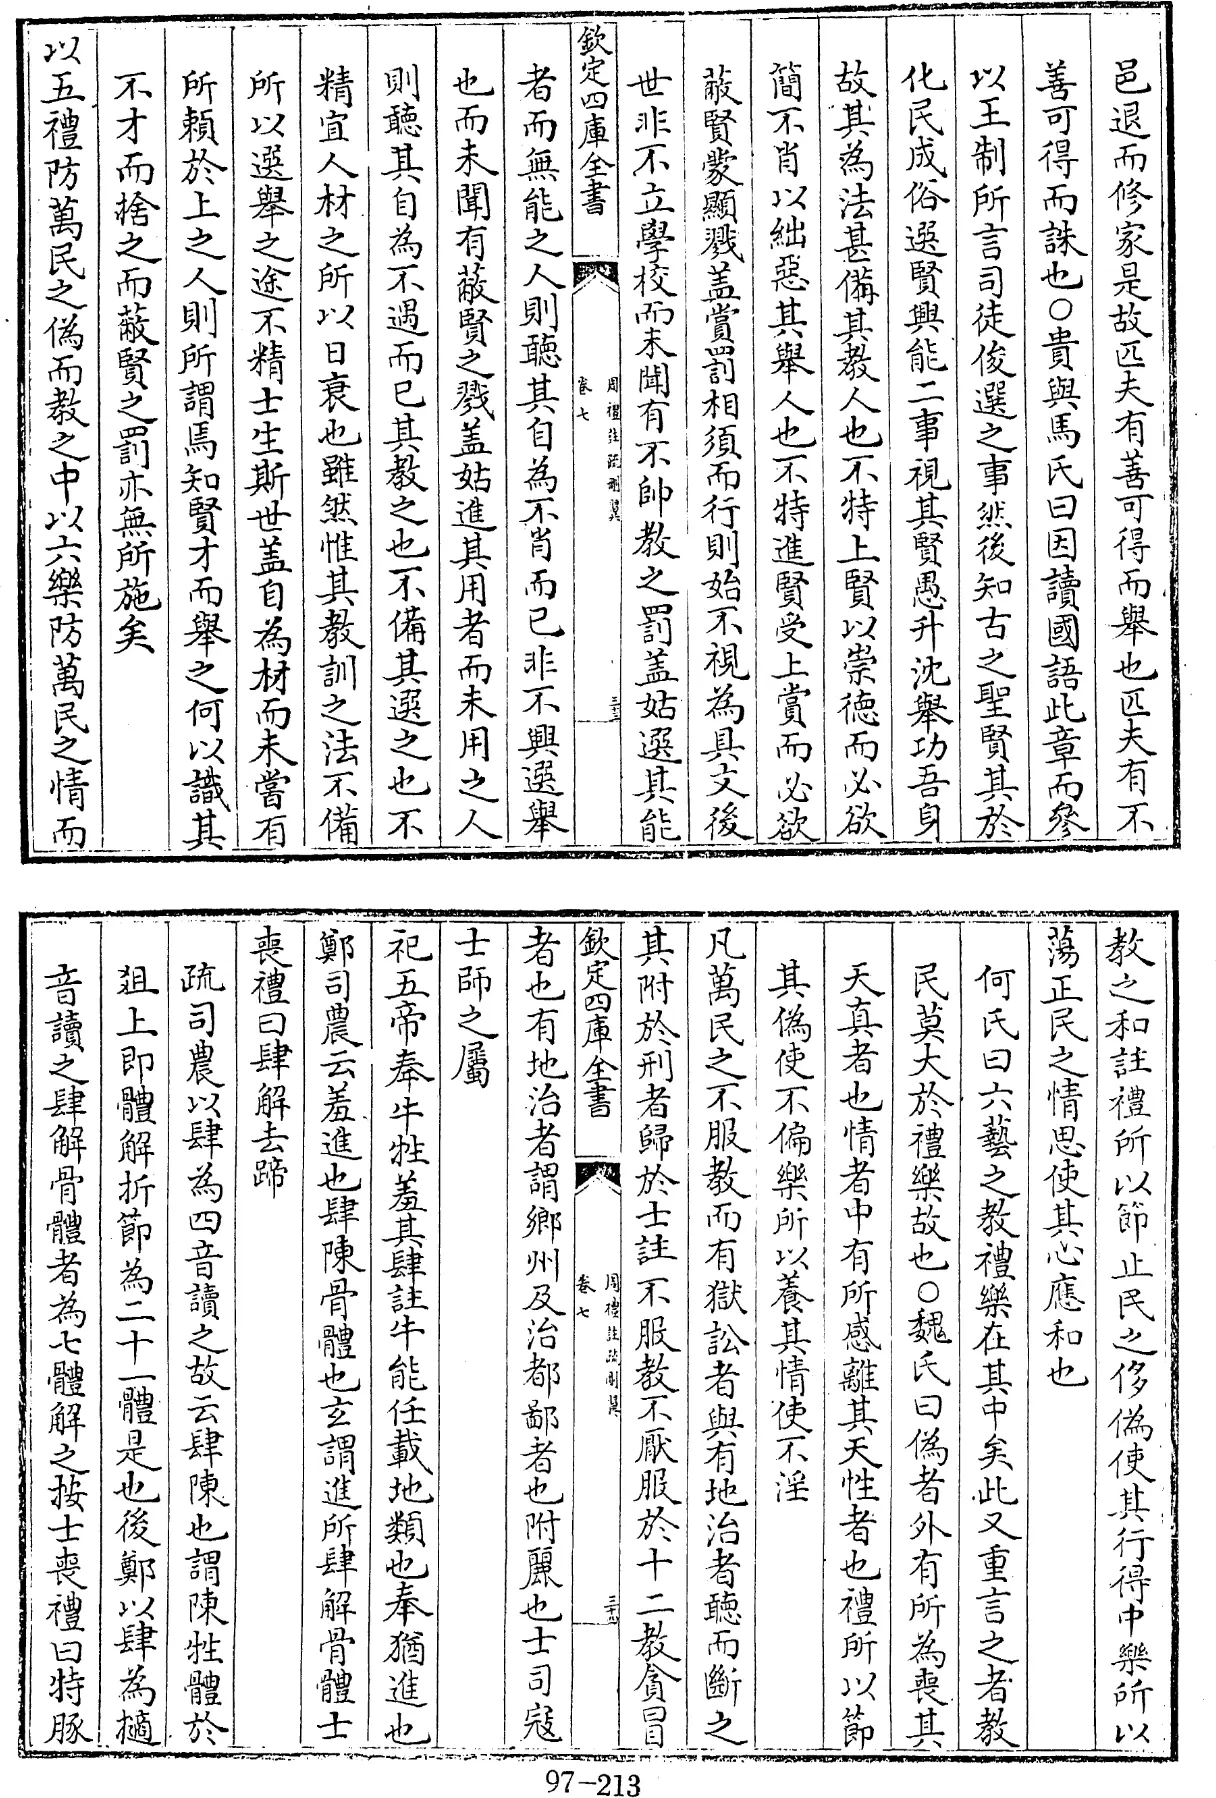 邑退而修家是故匹夫有善可得而舉也匹夫有不
善可得而誅也○貴與馬氏曰因讀國語此章而參
以王制所言司徒俊選之事然後知古之聖賢其於
化民成俗選賢興能二事視其賢愚升沈舉功吾身
故其為法甚備其教人也不特上賢以崇徳而必欲
簡不肖以絀惡其舉人也不特進賢受上賞而必欲
蔽賢蒙顯戮盖賞罰相須而行則始不視為具文後
世非不立學校而未聞有不帥教之罰盖姑選其能
欽定四庫全書
周禮註疏刪翼
卷七
三十三
者而無能之人則聽其自為不肖而已非不興選舉
也而未聞有蔽賢之戮盖姑進其用者而未用之人
則聽其自為不遇而已其教之也不備其選之也不
精宜人材之所以日衰也雖然惟其教訓之法不備
所以選舉之途不精士生斯世盖自為材而未嘗有
所賴於上之人則所謂焉知賢才而舉之何以識其
不才而捨之而蔽賢之罰亦無所施矣
以五禮防萬民之偽而教之中以六樂防萬民之情而
教之和註禮所以節止民之侈偽使其行得中樂所以
蕩正民之情思使其心應和也
何氏曰六藝之教禮樂在其中矣此又重言之者教
民莫大於禮樂故也○魏氏曰偽者外有所為喪其
天真者也情者中有所感離其天性者也禮所以節
其偽使不偏樂所以養其情使不淫
凡萬民之不服教而有獄訟者與有地治者聽而斷之
其附於刑者歸於士註不服教不厭服於十二教貪冒
欽定四庫全書
周禮註疏刪翼
卷七
三十四
者也有地治者謂鄉州及治都鄙者也附麗也士司寇
士師之屬
祀五帝奉牛牲羞其肆註牛能任載地類也奉猶進也
鄭司農云羞進也肆陳骨體也玄謂進所肆解骨體士
喪禮曰肆解去蹄
疏司農以肆為四音讀之故云肆陳也謂陳牲體於
俎上即體解折節為二十一體是也後鄭以肆為擿
音讀之肆解骨體者為七體解之按士喪禮曰特豚
97-213